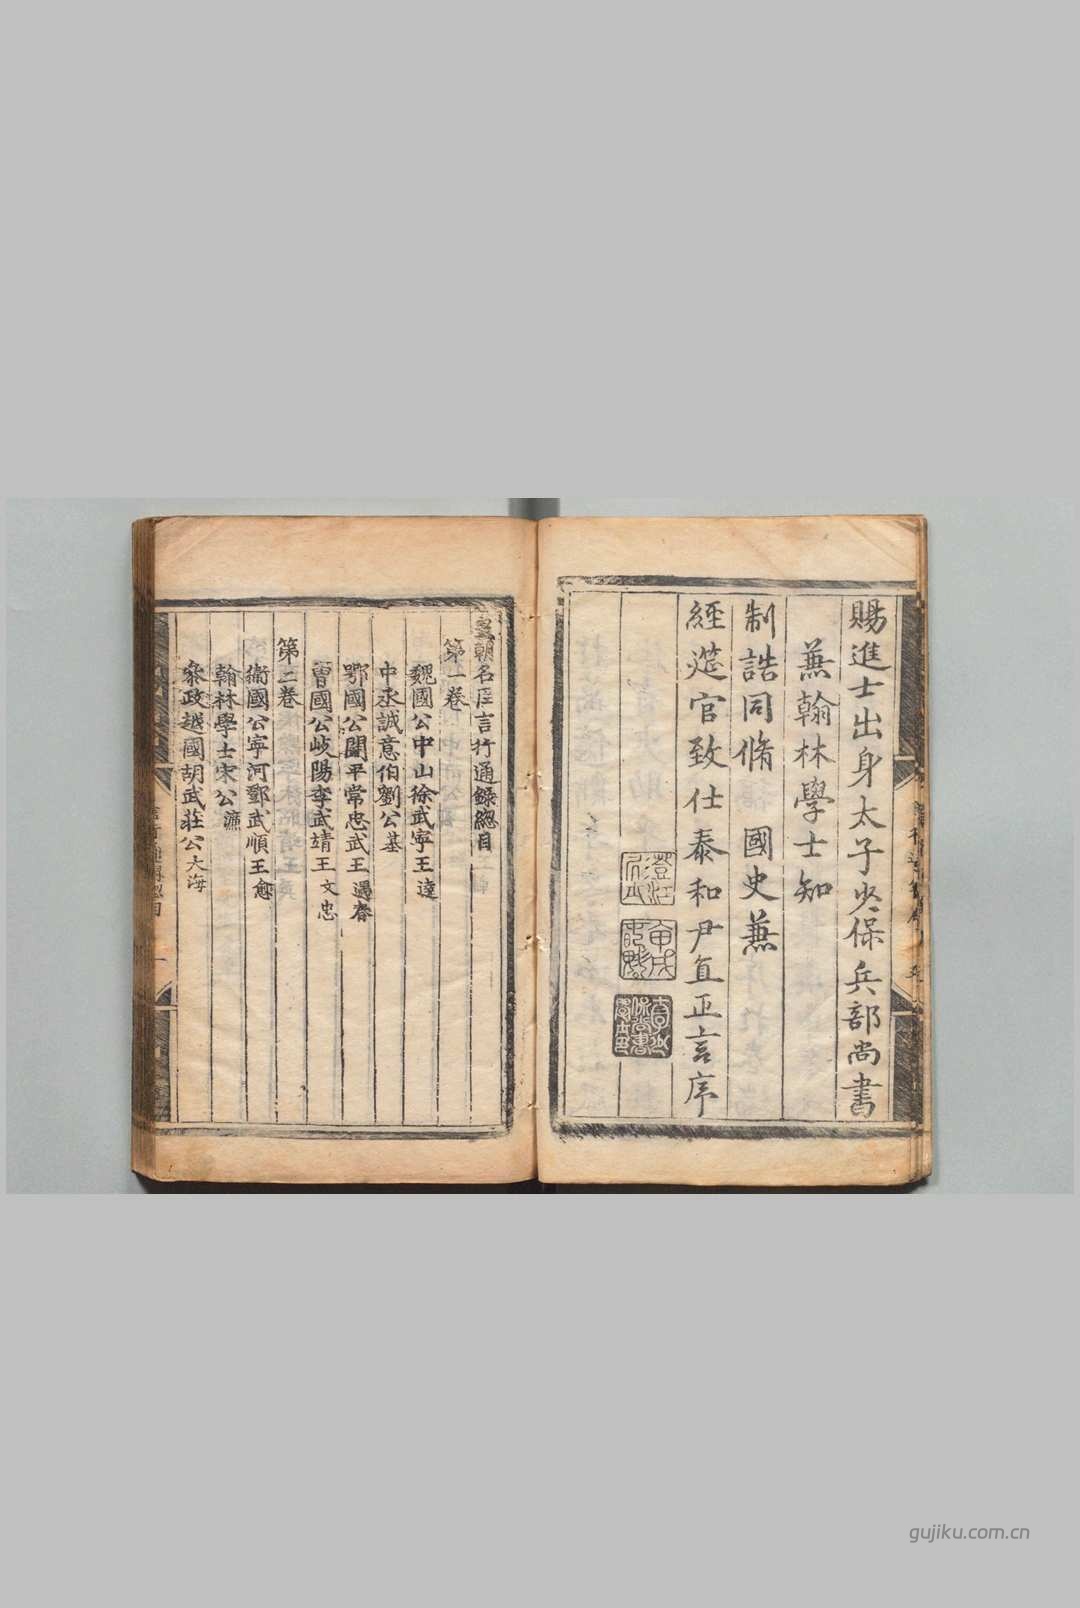 賜進士出身太子少保兵部尚書
兼翰林學士知
制誥同脩 國史兼
經筵官致仕泰和尹直正言序
皇朝名臣言行通錄總目
第一卷
魏國公中山徐武寧王達
中丞誠意伯劉公基
鄂國公開平常忠武王遇春
曹國公岐陽李武靖王文忠
第二卷
衛國公寧河鄧武順王愈
翰林學士宋公濂
參政越國胡武莊公大海
gujiku.com.cn